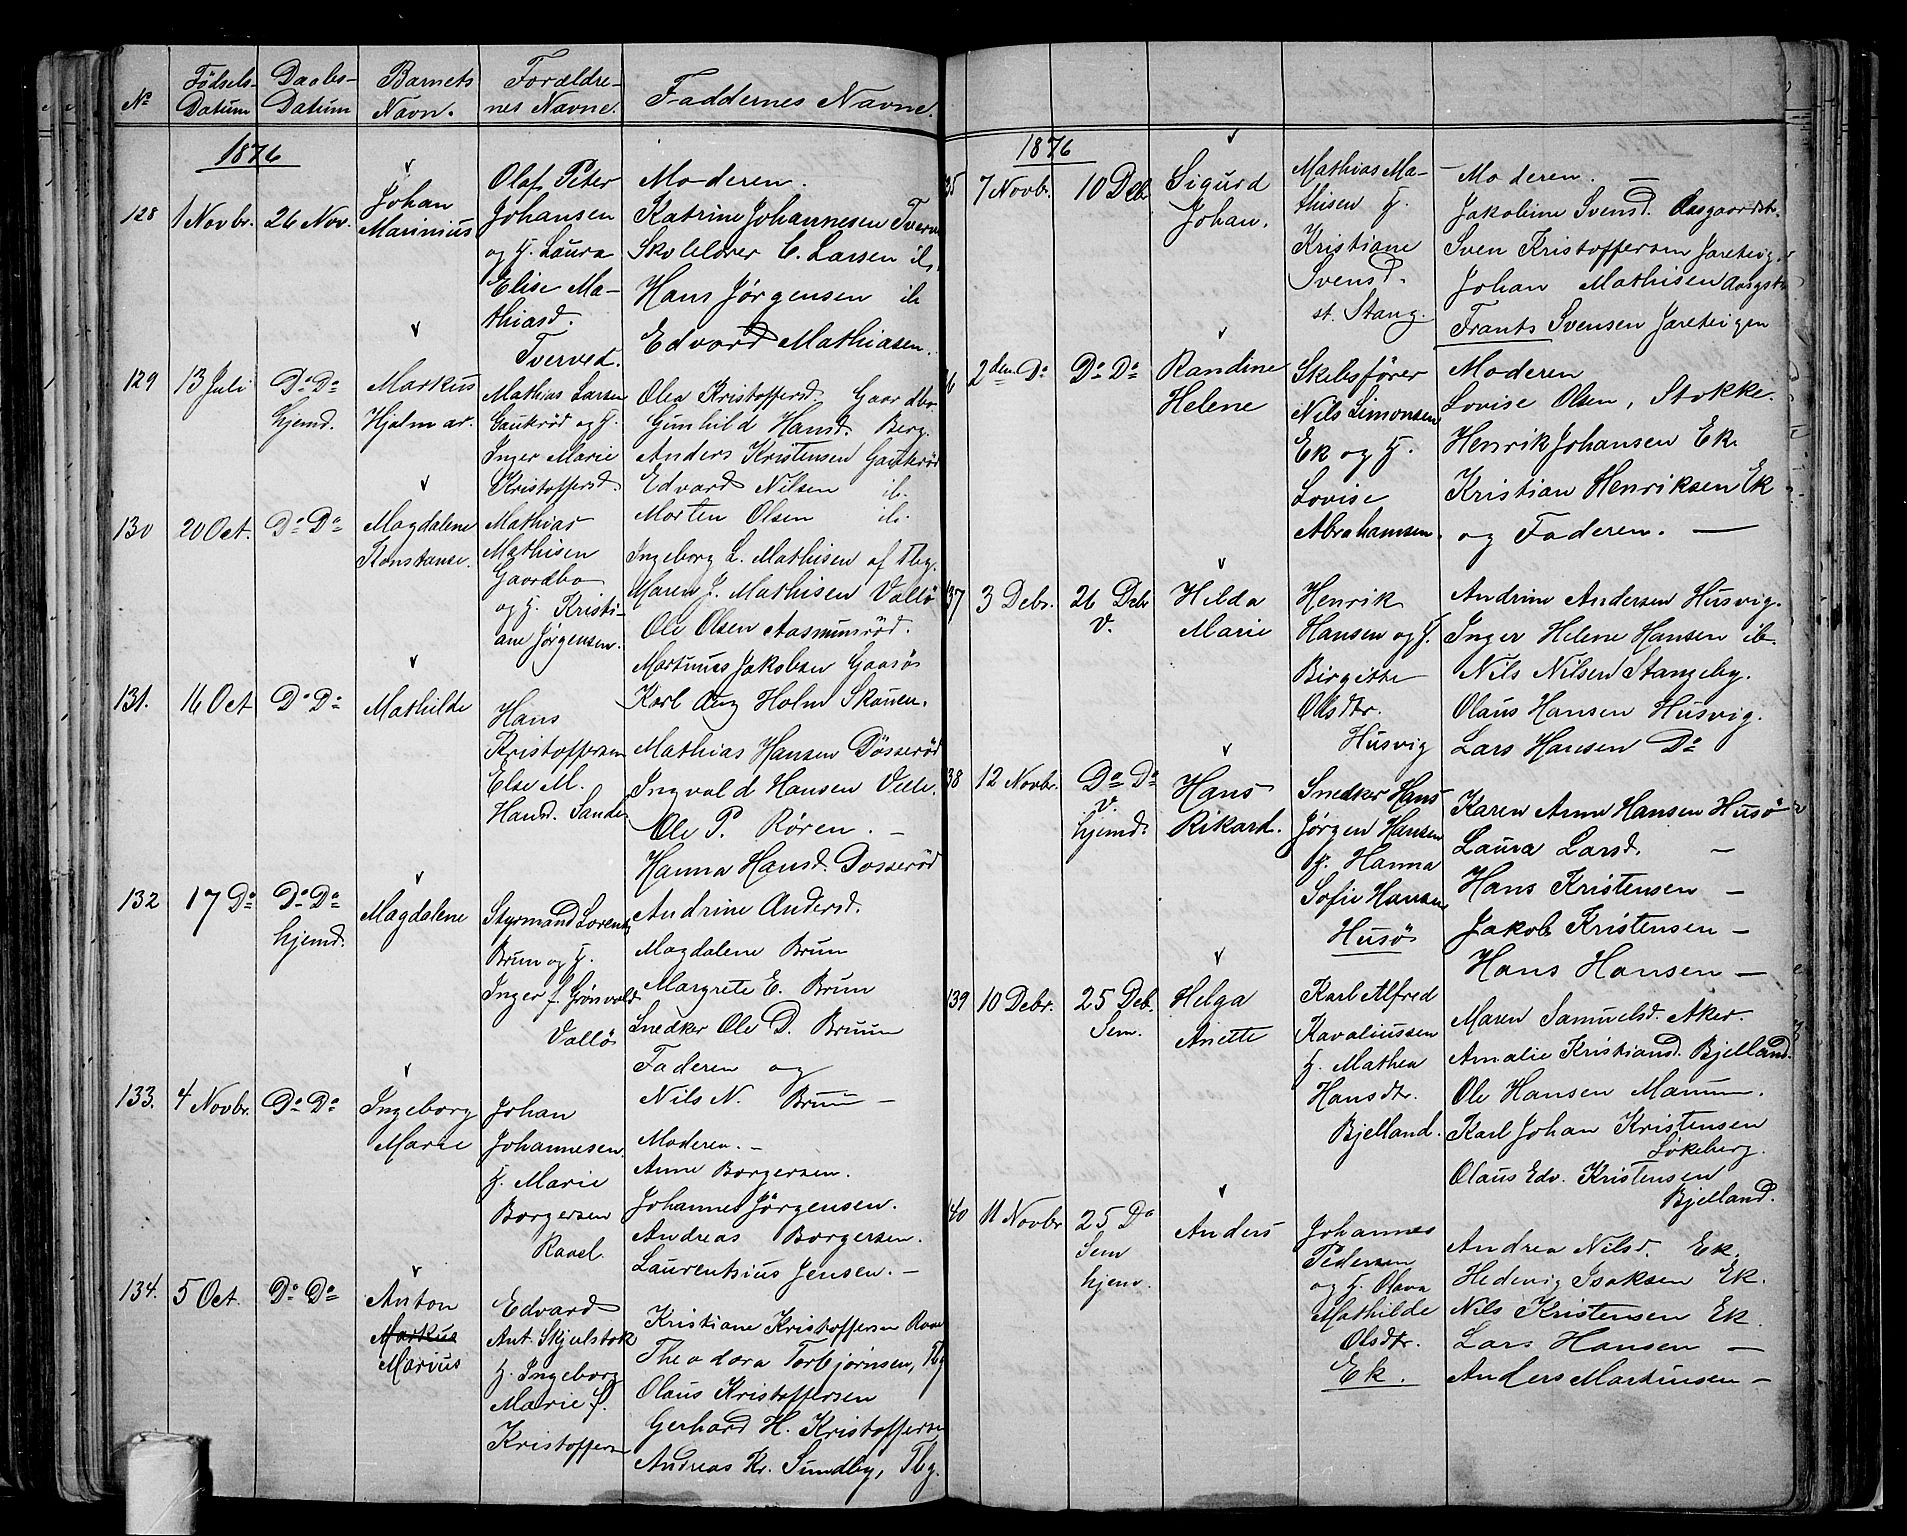 No
Fødsels-
Datum
Daabs-
Datum
Barnets
Navn.
Forældre-
nes Navne.
Faddernes Navne.
1876
128
1 Novbr.
26 Nov.
Johan
Marinius
Olaf Peter
Johansen
og H. Laura
Elise Ma-
thiasd.
Tverved.
Moderen.
Katrine Johannesen
Skolelærer C. Larsen ib.
Hans Jørgensen ib
Edvard Mathiasen.
129
13 Juli
Do Do
hjemd.
Markus
Hjalmar.
Mathias Larsen
Gaukrød og H.
Inger Marie
Kristoffersd.
Olea Kristoffersd. Gaardbo
Gunhild Hansd. Berg.
Anders Kristensen Gaukerød
Edvard Nilsen ib.
Morten Olsen ib.
130
20 Oct.
Do Do
Magdalene
Konstanse.
Mathias
Mathisen
Gaardbo
og H. Kristi-
ane Jørgensen.
Ingeborg L. Mathisen af Tbg.
Maren J. Mathisen Vallö
Ole Olsen Aasmunrød.
Martinus Jakobsen Gaasø
Karl Aug Holm Skauen.
131.
16 Oct
Do Do
Mathilde
Hans
Kristoffersen
Else M.
Hansd. Sande
Mathias Hansen Døsserød
Ingvald Hansen
Ole P. Røren. -
Hanna Hansd. Dosserød
132
17 Do
Do Do
hjemd.
Magdalene
Styrmand Lorents
Brun og H.
Inger f. Grönvold
Vallö
Andrine Andersd.
Magdalene Brun
Margrete E. Brun
Snedker Ole D. Bruun
Faderen og
Nils N. Bruu -
133.
4 Novbr.
Do Do
Ingeborg
Marie
Johan
Johannesen
H. Marie
Borgersen
Ravel.
Moderen. -
Anne Borgersen.
Johannes Jørgensen.
Andreas Borgersen.
Laurentsius Jensen. -
134.
5 Oct.
Do Do
Anton
Markus
Marius
Edvard
Ant. Skjelstok
H. Ingeborg
Marie f.
Kristoffersen
Kristiane Kristoffersen
Theodora Torbjørnsen, Tbg
Olaus Kristoffersen
Gerhard H. Kristoffersen
Andreas Kr. Sundby, Tbg.
1876
35
7 Novbr.
10 Deb
Sigurd
Johan.
Mathias Ma-
thisen H.
Kristiane
Svensd.
st. Stang.
Moderen. -
Jakobine Svensd. Aasgaardstr.
Sven Kristoffersen Jareteig.
Johan Mathisen Aasgstr
Frants Svensen Jareteigen
36
2den Do
Do Do
Randine
Helene
Skibsfører
Nils Simonsen
Ek og H.
Lovise
Abrahamsen.
Moderen
Lovise Olsen, Stokke.
Henrik Johansen Ek.
Kristian Henriksen Ek
og Faderen. -
137
3 Debr.
26 Debr
V.
Hilda
Marie
Henrik
Hansen og H.
Birgitte
Olsdtr.
Husvig
Andrine Andersen Husvig.
Inger Helene Hansen ib.
Nils Nilsen Stangeby.
Olaus Hansen Husvig.
Lars Hansen Do
38
12 Novbr.
Do Do
V.
hjemd.
Hans
Rikard.
Snedker Hans
Jørgen Hansen
H. Hanna
Sofie Hansen
Husø
Karen Anne Hansen Husö
Laura Larsd. -
Hans Kristensen -
Jakob Kristensen -
Hans Hansen -
139
10 Debr.
25 Deb.
Sem.
Helga
Anette
Karl Alfred
Kavaliussen
H. Mathea
Hansdtr.
Bjelland.
Maren Samuelsd. Aker.
Amalie Kristiansd. Bjelland.
Ole Hansen Manum.
Karl Johan Kristensen
Løkeberg.
Olaus Edv. Kristensen
Bjelland.
40
11 Novbr
25 Do
Sem
hjem.
Anders
Johannes
Pedersen
og H. Olava
Mathilde
Olsdtr.
Ek.
Andrea Nilsd. Ek.
Hedevig Isaksen Ek.
Nils Kristensen Ek.
Lars Hansen -
Anders Martinsen -